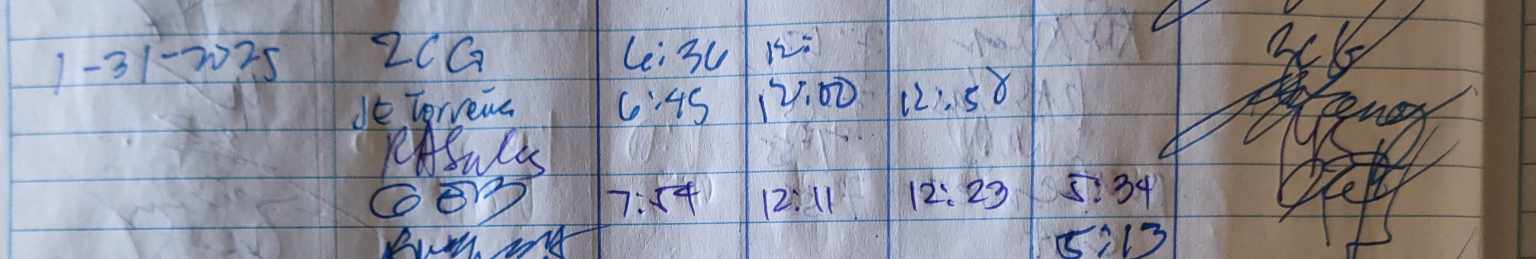 1-31-2025 ZCG 6:36 12: ZCG
JE Torreña 6:45 12:00 12:58
RASales
GOB 7:54 12:11 12:23 5:34
5:13